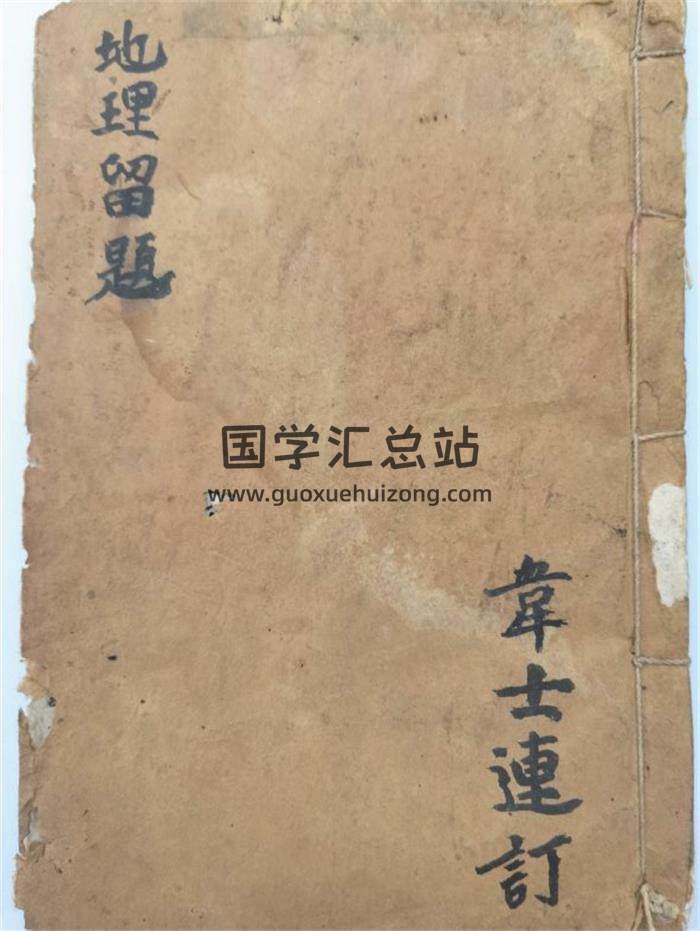 地理留題
国学汇总站
www.guoxuehuizong.com
韋士連訂